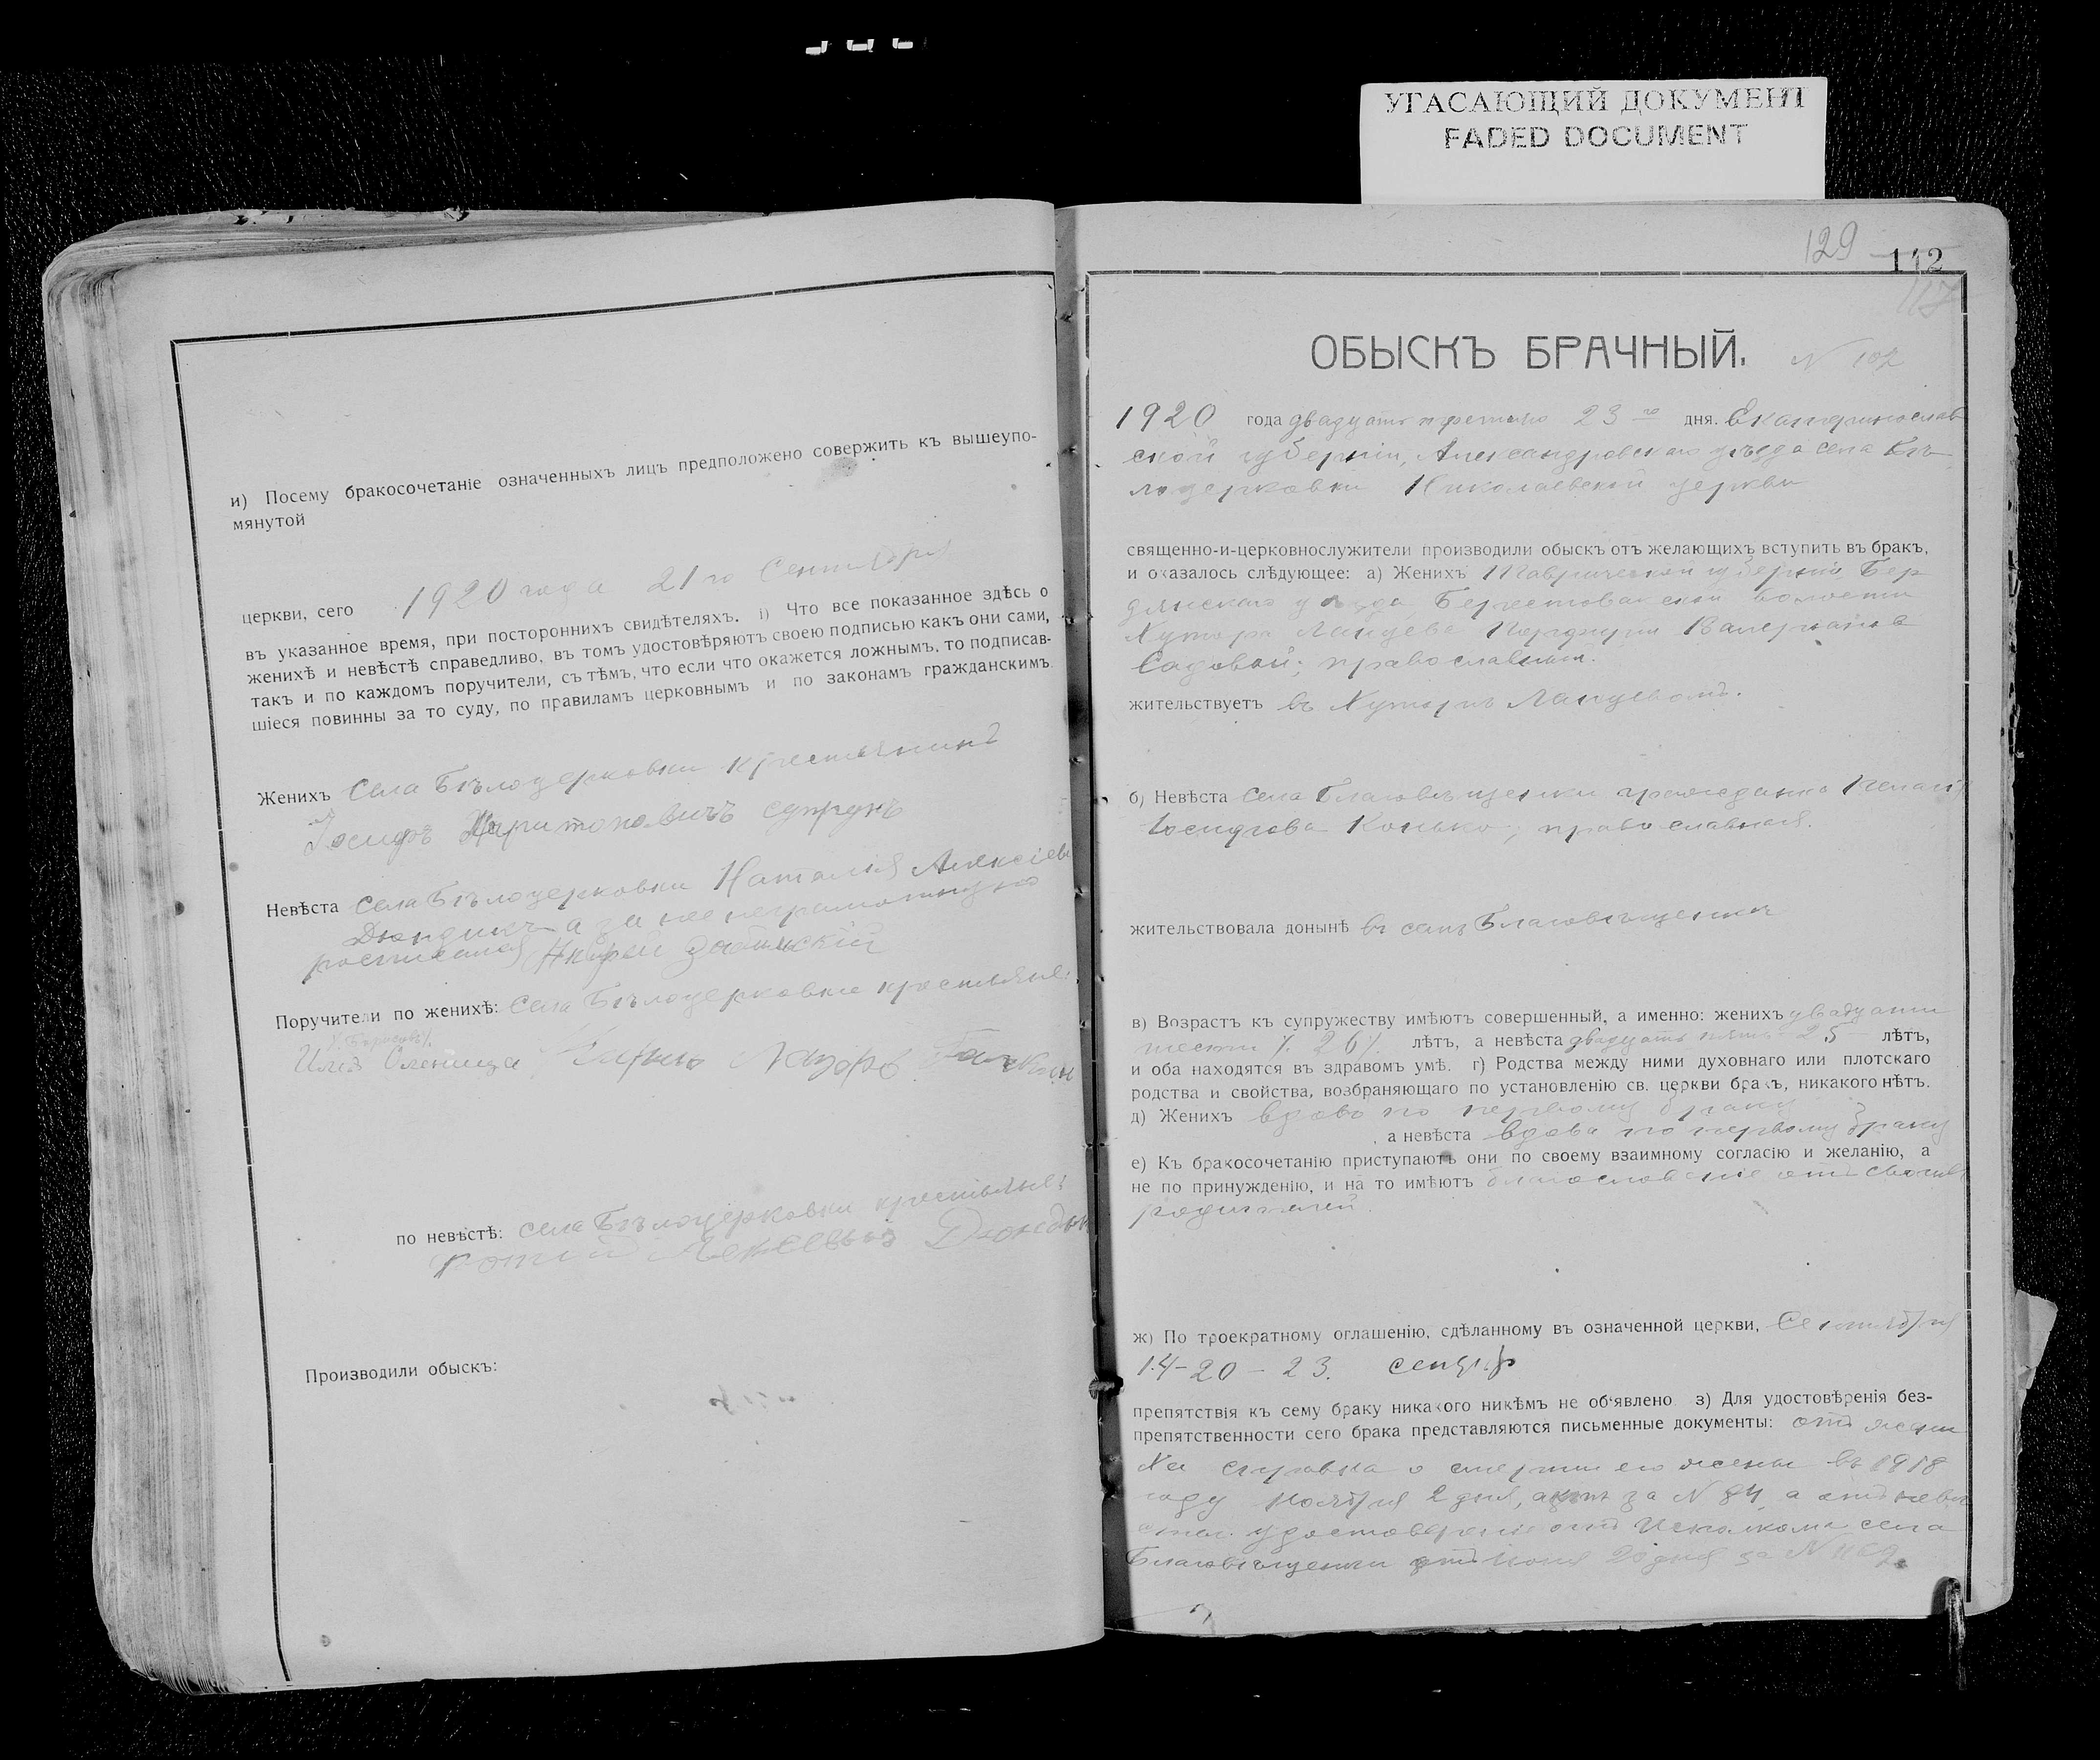 УГАСАЮЩИЙ ДОКУМЕНТ
FADED DOCUMENT
и) Посему бракосочетаніе означенныхъ лицъ предположено совержить къ вышеупо-
мянутой
церкви, сего 1920 года 21го Сентября
въ указанное время, при постороннихъ свидѣтеляхъ. і) Что все показанное здѣсь о
женихѣ и невѣстѣ справедливо, въ томъ удостовѣряютъ своею подписью какъ они сами,
такъ и по каждомъ поручители, съ тѣмъ, что если что окажется ложнымъ, то подписав-
шіеся повинны за то суду, по правиламъ церковнымъ и по законамъ гражданскимъ.
Женихъ Села Бѣлоцерковки крестьянинъ
Іосифъ Харитоновичъ Супрунъ
Невѣста Села Бѣлоцерковки Наталія Алексіева
Дюндикъ а за нее неграмотную
росписался Андрей
Поручители по женихѣ: Села Бѣлоцерковки крестьяне:
по невѣстѣ: Села Бѣлоцерковки крестьяне:
Дюндик
Производили обыскъ:
129
112
117
ОБЫСКЪ БРАЧНЫЙ. N 102
1920 года двадцать третьяго 23го дня. Екатеринослав
ской губерніи, Александровскаго уѣзда села Бѣ
лоцерковки Николаевской церкви
священно-и-церковнослужители производили обыскъ отъ желающихъ вступить въ бракъ,
и оказалось слѣдующее: а) Женихъ Таврической губерніи Бер
дянскаго уѣзда Берестованской волости
Хутора Ланцева Порфирій Валеріанов
Садовой; православный.
жительствуетъ въ Хуторѣ Ланцевомъ.
б) Невѣста Села Благовѣщенки гражданка Пелагія
Іосифова Конько, православная.
жительствовала донынѣ въ селѣ Благовѣщенкѣ
в) Возрастъ къ супружеству имѣютъ совершенный, а именно: женихъ двадцати
шести /. 26/. лѣтъ, а невѣста двадцать пять 25 лѣтъ,
и оба находятся въ здравомъ умѣ. г) Родства между ними духовнаго или плотскаго
родства и свойства, возбраняющаго по установленію св. церкви бракъ, никакого нѣтъ.
д) Женихъ вдовъ по первому браку
, а невѣста вдова по первому браку
е) Къ бракосочетанію приступаютъ они по своему взаимному согласію и желанію, а
не по принужденію, и на то имѣютъ благословеніе отъ своихъ
родителей.
ж) По троекратному оглашенію, сдѣланному въ означенной церкви, Сентября
14-20-23.
препятствія къ сему браку никакого никѣмъ не объявлено з) Для удостовѣренія без-
препятственности сего брака представляются письменные документы: отъ жени
ха справка о смерти его жены въ 1918
году Ноября 2 дня, актъ за N 84, а отъ невѣ
сты удостовѣреніе отъ Исполкома села
Благовѣщенки отъ Іюня 20 дня за N